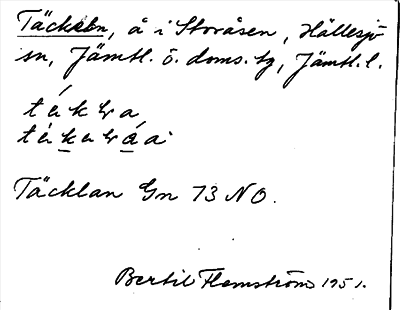 Täckeln, å i Storåsen, Hällesjö
sn, Jämtl. ö. doms. hg, Jämtl. l.
Täcklan Gn 73 NO.
Bertil Flemström 1951.